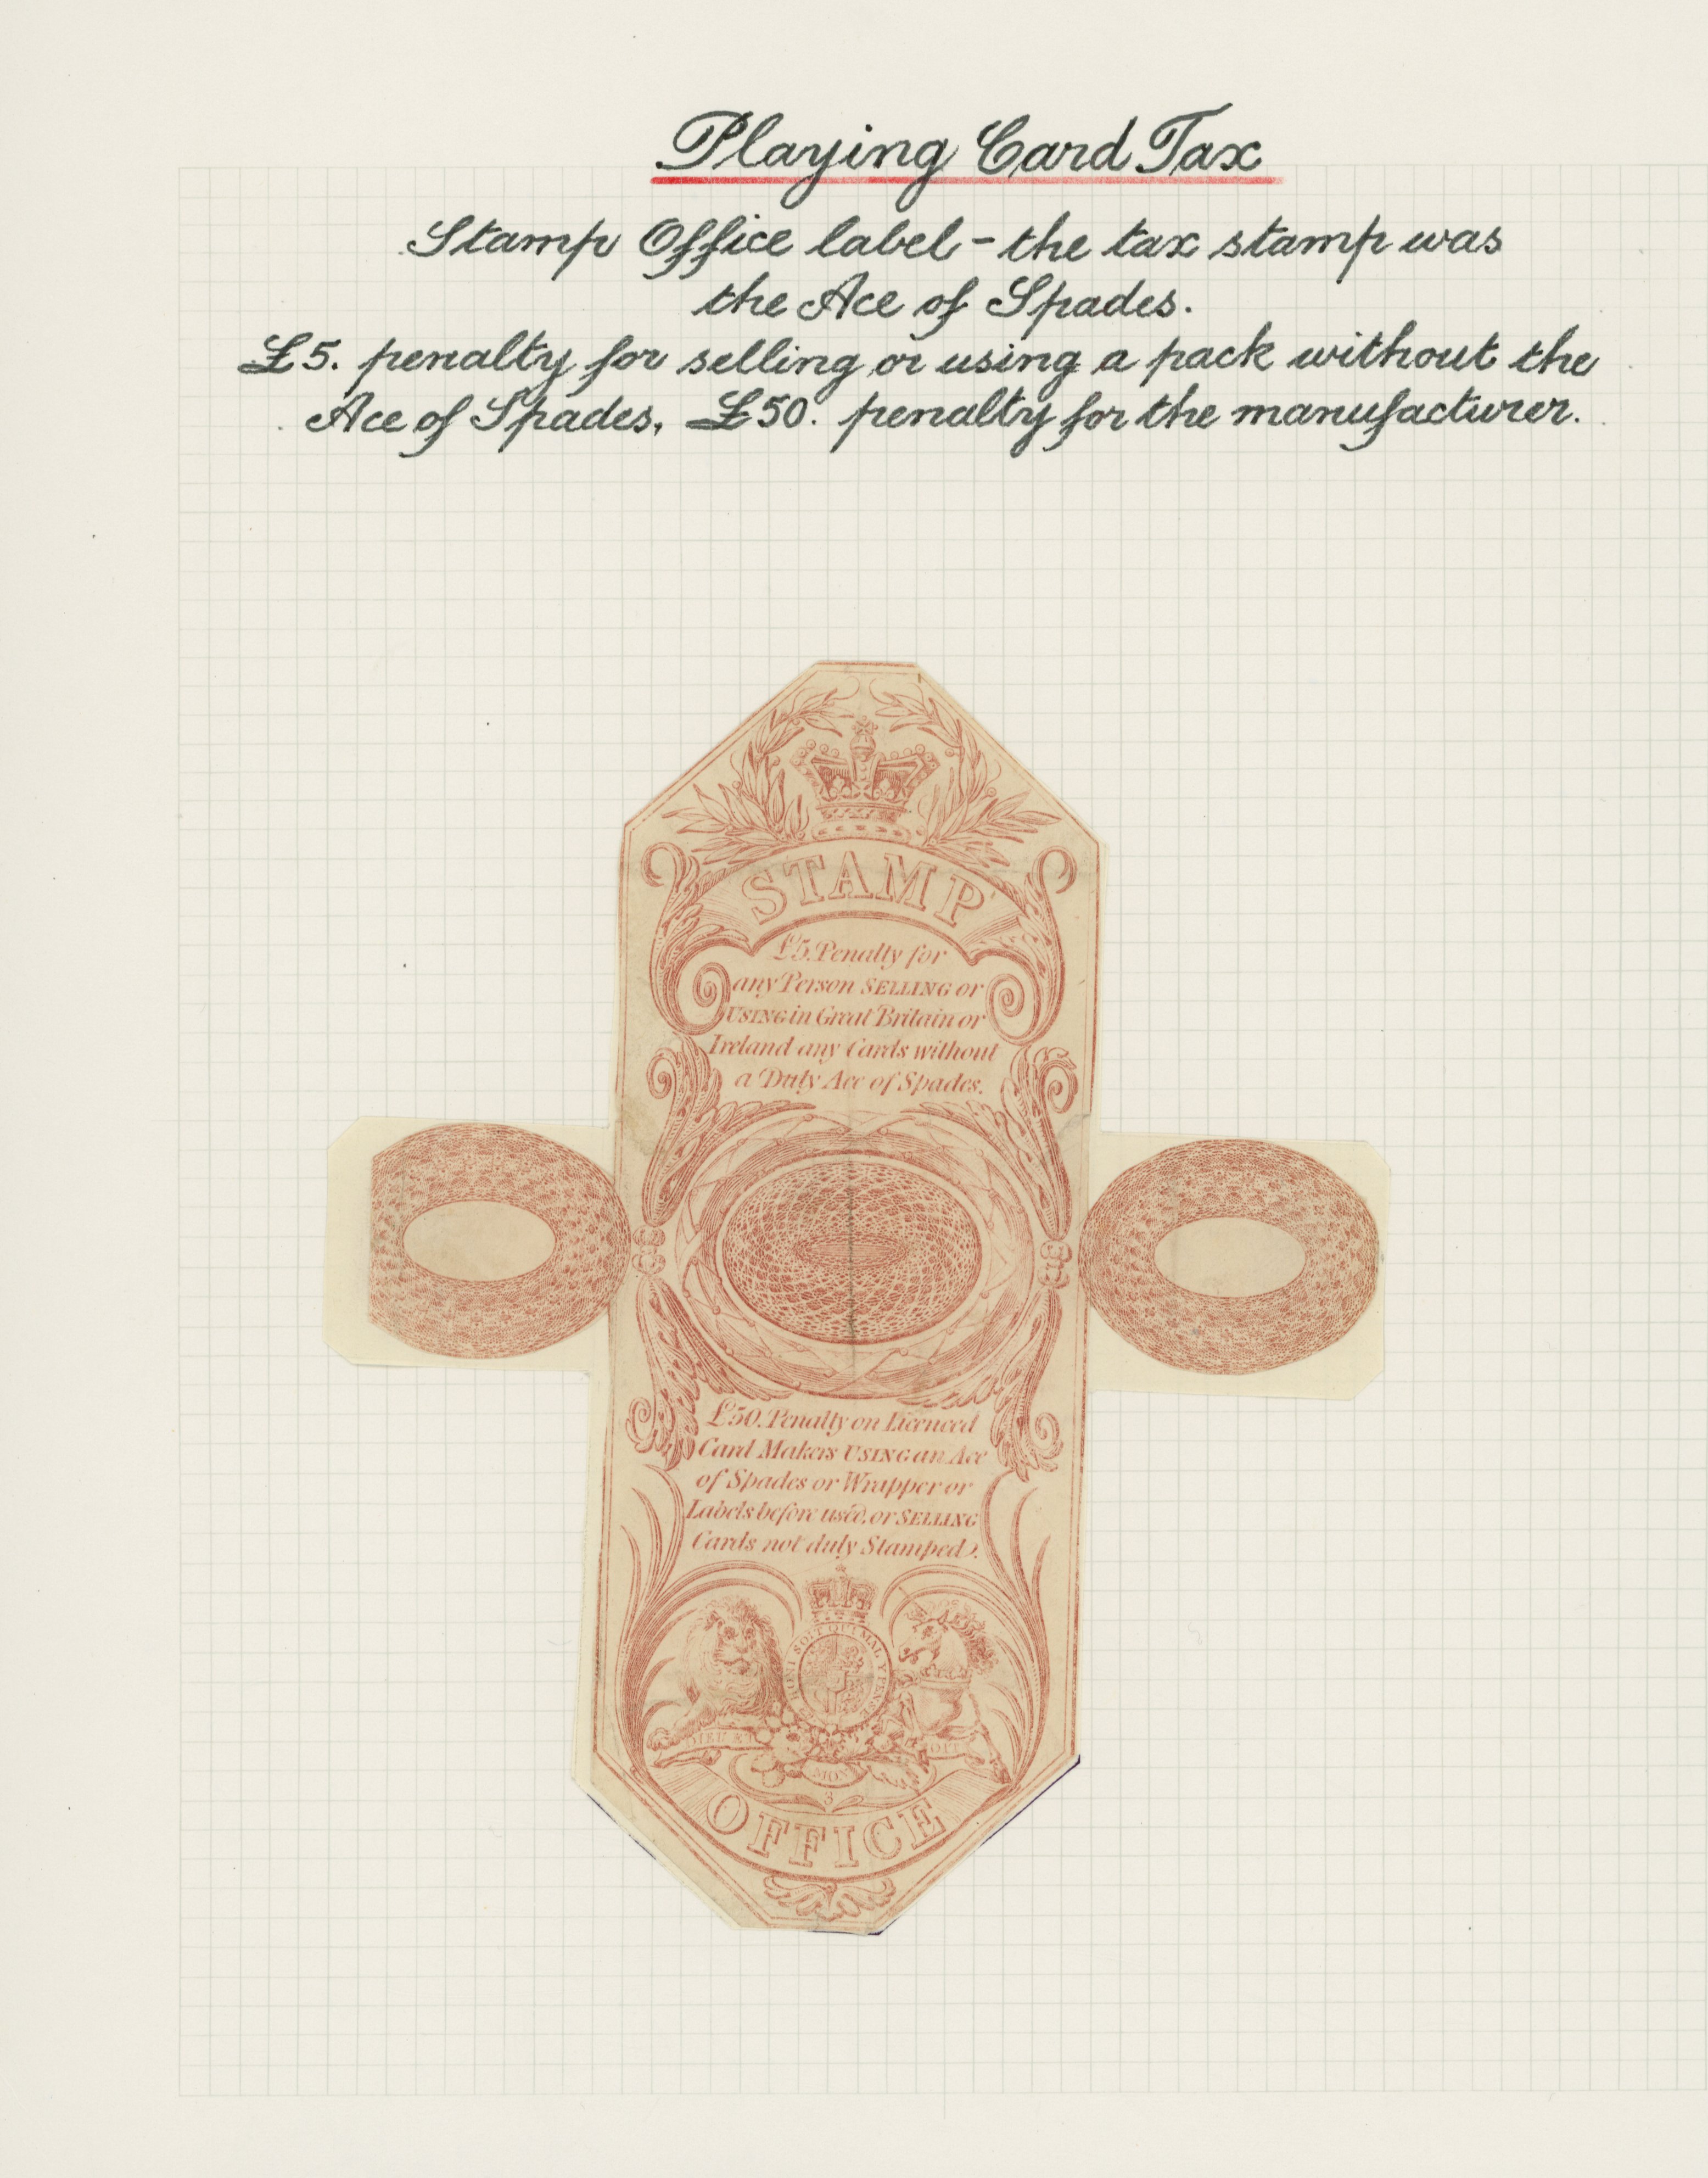 Playing Card Tax
Stamp Office label - the tax stamp was
the Ace of Spades.
£5. penalty for selling or using a pack without the
Ace of Spades, £50. penalty for the manufacturer.
STAMP
£5. Penalty for
any Person SELLING or
USING in Great Britain or
Ireland any Cards without
a Duty Ace of Spades.
£50. Penalty on Licenced
Card Makers USING an Ace
of Spades or Wrapper or
Labels before used, or SELLING
Cards not duly Stamped.
HONI SOIT QUI MAL Y PENSE
DIEU ET
MON
3
OFFICE